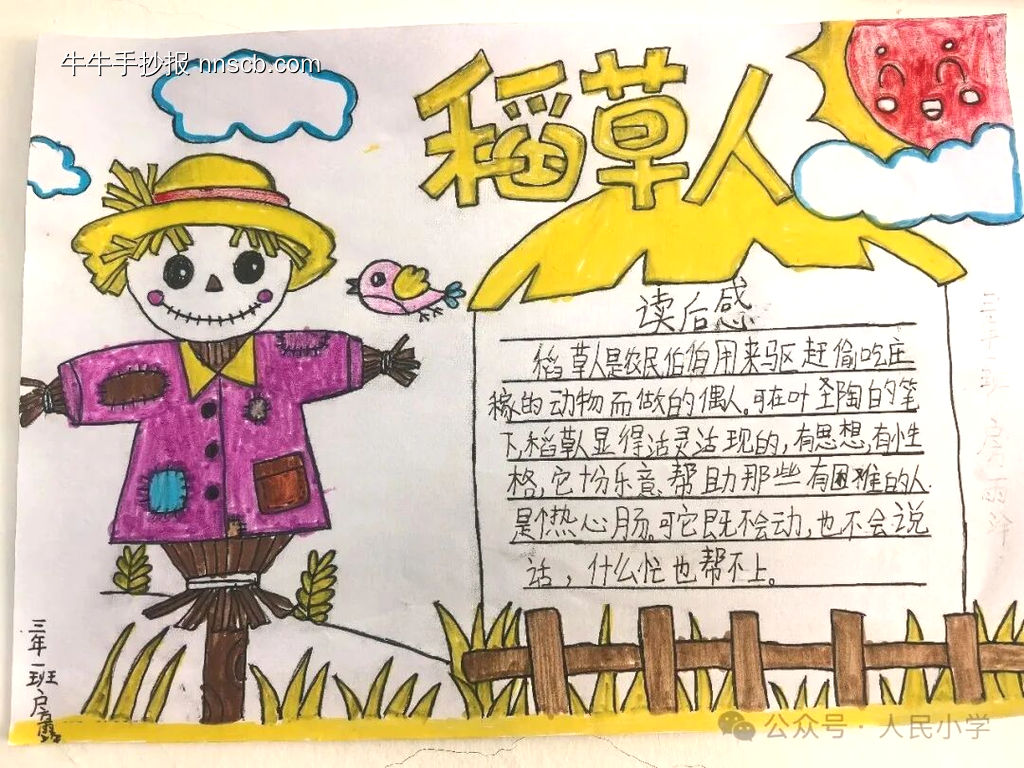 牛牛手抄报 nnscb.com
稻草人
读后感
稻草人是农民伯伯用来驱赶偷吃庄
稼的动物而做的偶人。可在叶圣陶的笔
下,稻草人显得活灵活现的,有思想,有性
格,它十分乐意帮助那些有困难的人.
是个热心肠。可它既不会动,也不会说
话,什么忙也帮不上。
三年一班
公众号·人民小学